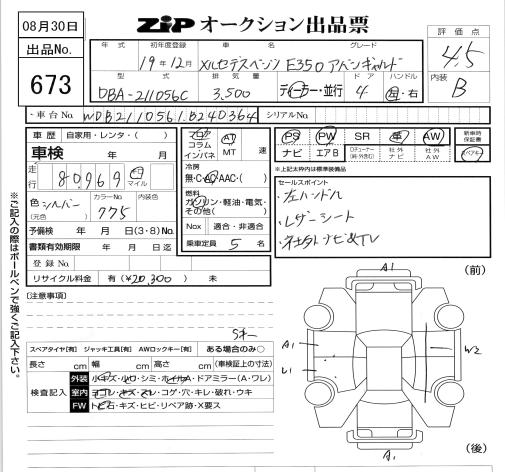 08月30日
ZiP オークション出品票
評価点
4.5
出品No.
673
年式 初年度登録 車名 グレード
19年12月 メルセデスベンツ E350 アバンギャルド
型式 排気量 ドア ハンドル
DBA-211056C 3,500 ディーラー・並行 4 左・右
内装
B
・車台No. WDB2110561B240364
シリアルNo.
車歴 自家用・レンタ・( )
車検 年 月
走行 80,969 マイル
色 シルバー
(元色)
カラーNo. 775
内装色
予備検 年 月 日(3・8)No.
書類有効期限 年 月 日迄
登録No.
リサイクル料金 有(¥20,300) 未
フロア AT
コラム MT
インパネ 速
冷房
無・C・AC・AAC・( )
燃料
ガソリン・軽油・電気・その他( )
Nox 適合・非適合
乗車定員 5 名
PS PW SR 革 AW
ナビ エアB 社外ナビ 社外AW
新車時保証書
スペアキー
※上記太枠内は標準装備品
セールスポイント
・左ハンドル
・レザーシート
・社外ナビ&TV
※ご記入の際はボールペンで強くご記入下さい。
[注意事項]
スペアタイヤ[有] ジャッキ工具[有] AWロックキー[有] ある場合のみ○
長さ cm 幅 cm 高さ cm (車検証上の寸法)
検査記入
外装 小キズ・小凹・シミ・ホイルA・ドアミラー(A・ワレ)
室内 ヨゴレ・キズ・スレ・コゲ・穴・キレ・破れ・ウキ
FW トビ石・キズ・ヒビ・リペア跡・X要ス
A1 (前)
A1
W2
U1
A1 (後)